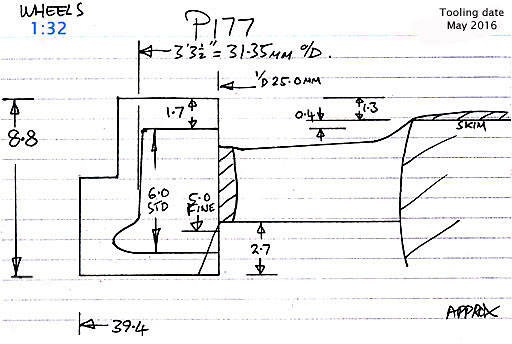 WHEELS
1:32
P177
Tooling date
May 2016
3'3½" = 31.35 MM O/D.
I/D 25.0MM
1.7
0.4
1.3
SKIM
8.8
6.0
STD
5.0
FINE
2.7
39.4
APPROX